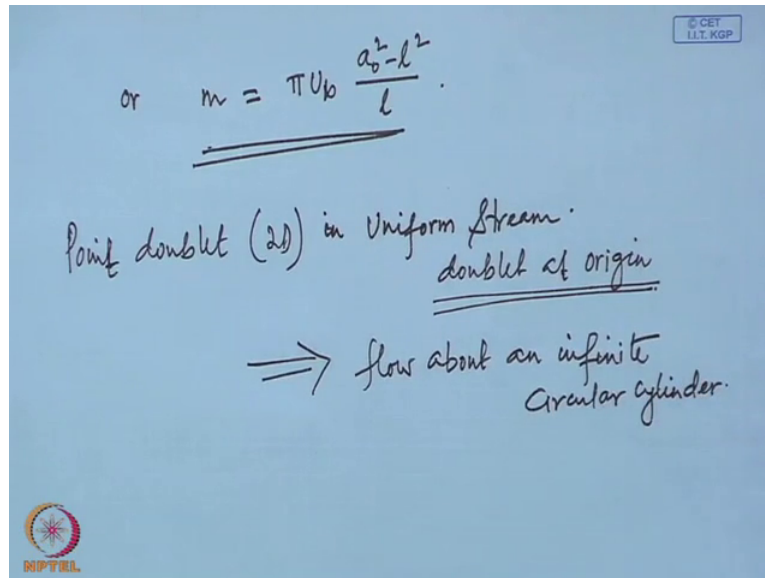 © CET
I.I.T. KGP
or m = π U∞ (a₀² - l²) / l .
Point doublet (2D) in Uniform Stream.
doublet at origin
⇒ flow about an infinite
Circular cylinder.
NPTEL